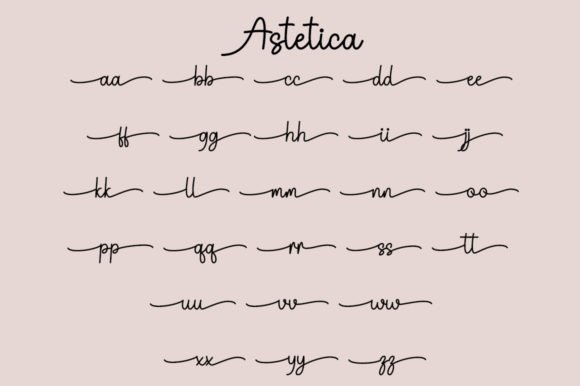 Astetica
aa bb cc dd ee
ff gg hh ii jj
kk ll mm nn oo
pp qq rr ss tt
uu vv ww
xx yy zz